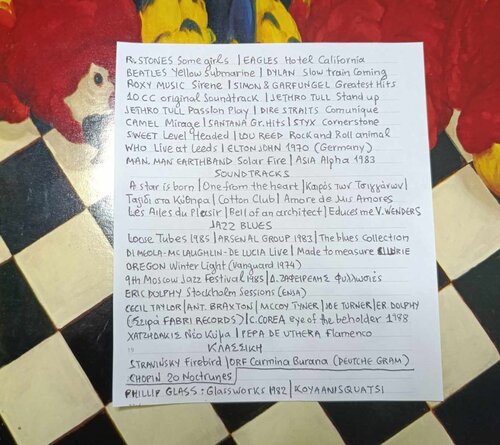 R.STONES Some girls | EAGLES Hotel California
BEATLES Yellow submarine | DYLAN Slow train Coming
ROXY MUSIC Sirene | SIMON & GARFUNGEL Greatest Hits
10CC original Soundtrack | JETHRO TULL Stand up
JETHRO TULL Passion Play | DIRE STRAITS Comunique
CAMEL Mirage | SANTANA Gr.Hits | STYX Cornerstone
SWEET Level Headed | LOU REED Rock and Roll animal
WHO Live at Leeds | ELTON JOHN 1970 (Germany)
MAN.MAN EARTHBAND Solar Fire | ASIA Alpha 1983
SOUNDTRACKS
A star is born | One from the heart | Καιρός των Τσιγγάνων |
Ταξίδι στα Κύθηρα | Cotton Club | Amore de Mis Amores
Les Ailes du Plesir | Bell of an architect | Educes me V.WENDERS
JAZZ BLUES
Loose Tubes 1985 | ARSENAL GROUP 1983 | The blues Collection
DI MEOLA-MCLAUGHLIN-DE LUCIA Live | Made to measure
OREGON Winter Light (Vanguard 1974)
9th Moscow Jazz Festival 1985 | Δ.ΖΑΦΕΙΡΕΛΗΣ
ERIC DOLPHY Stockholm Sessions (ENJA)
CECIL TAYLOR | ANT. BRAXTON | MCCOY TYNER | JOE TURNER | ER. DOLPHY
(Σειρά FABRI RECORDS) | C.COREA eye of the beholder 1988
ΧΑΤΖΗΔΑΚΙΣ Νέο Κύμα | PEPA DE UTHERA Flamenco
ΚΛΑΣΣΙΚΗ
STRAVINSKY Firebird | ORF Carmina Burana (DEUTCHE GRAM)
CHOPIN 20 Noctrunes
PHILLIP GLASS: Glassworks 1982 | KOYAANISQUATSI